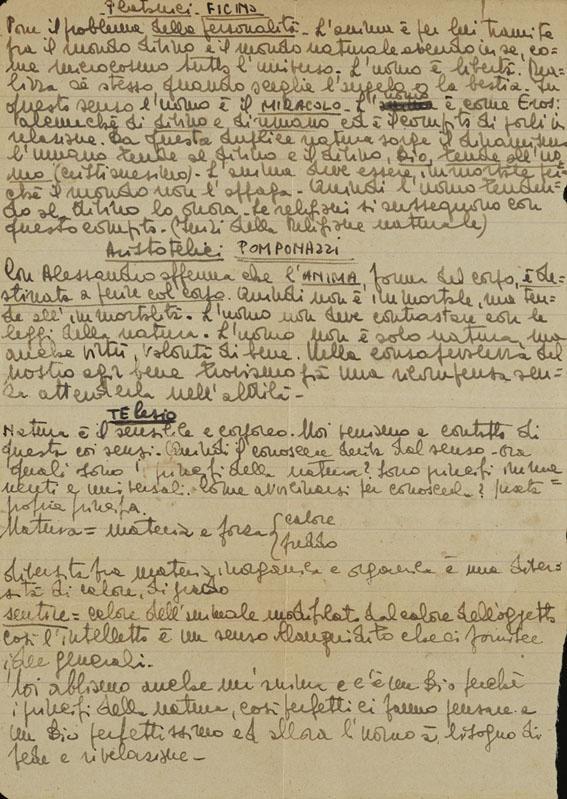 Platonici - FICINO
Pone il problema della personalità - L'anima è per lui tramite
fra il mondo divino e il mondo naturale avendo in se, co=
me microcosmo tutto l'universo. L'uomo è libertà. Rea=
lizza sè stesso quando sceglie l'angelo o la bestia. In
questo senso l'uomo è il MIRACOLO. L'uomo è come Eros:
partecipa di divino e di umano ed è il compito di porli in
relazione. Da questa duplice natura sorge il dinamismo
l'umano tende al divino e il divino, Dio, tende all'uo=
mo (cristianesimo). L'anima deve essere immortale poi=
chè il mondo non l'appaga. Quindi l'uomo tenden=
do al divino lo onora. Le religioni si susseguono con
questo compito. (della Religione naturale)
Aristotelici POMPONAZZI
Con Alessandro afferma che l'ANIMA, forma del corpo, è de=
stinata a perire col corpo. Quindi non è immortale, ma ten=
de all'immortalità. L'uomo non deve contrastare con le
leggi della natura. L'uomo non è solo natura, ma
anche virtù, volontà di bene. Nella consapevolezza del
nostro agir bene troviamo già una ricompensa sen=
za attenderla nell'aldilà -
TElesio
Natura è il sensibile e corporeo. Noi veniamo a contatto di
questa coi sensi. Quindi il conoscere deriva dal senso - ora
quali sono i principi della natura? Sono principi imma
nenti e universali. Come avvicinarsi per conoscerla?
propria principia.
Natura = materia e forza { calore
freddo
diversità fra materia inorganica e organica è una diver=
sità di calore, di grado
sentire = calore dell'animale modificato dal calore dell'oggetto
così l'intelletto è un senso illanguidito che ci fornisce
idee generali.
Noi abbiamo anche un'anima e c'è un Dio perchè
i principi della natura, così perfetti ci fanno pensare a
un Dio perfettissimo ed allora l'uomo à bisogno di
fede e rivelazione -